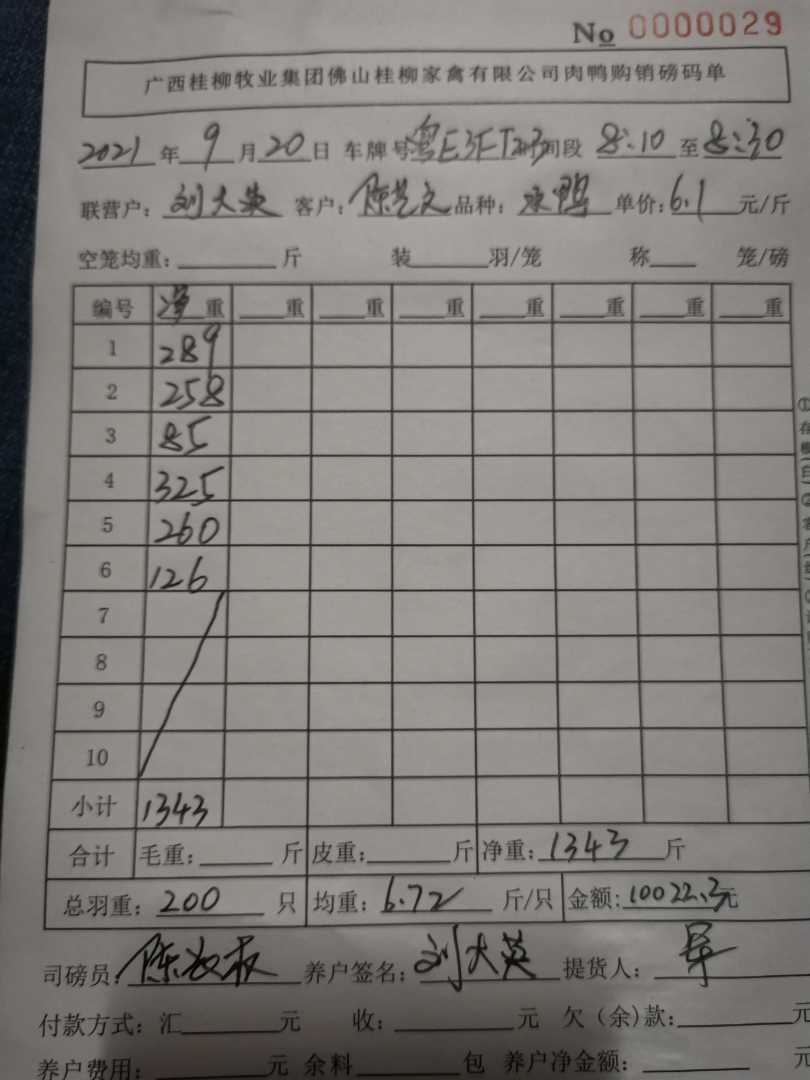 No 0000029
广西桂柳牧业集团佛山桂柳家禽有限公司肉鸭购销磅码单
2021年9月20日 车牌号 粤E3FT 间段 8:10至8:30
联营户：刘大英 客户：陈艺文 品种： 鸭 单价：6.1元/斤
空笼均重：斤 装羽/笼 称笼/磅
编号 净重 重 重 重 重 重 重 重
1 289
2 258
3 85
4 325
5 260
6 126
7
8
9
10
小计 1343
合计 毛重：斤 皮重：斤 净重：1343斤
总羽重：200只 均重：6.72斤/只 金额：10022.3元
司磅员：陈 养户签名：刘大英 提货人：
付款方式：汇元 收：元 欠（余）款：元
养户费用：元 余料包 养户净金额：元